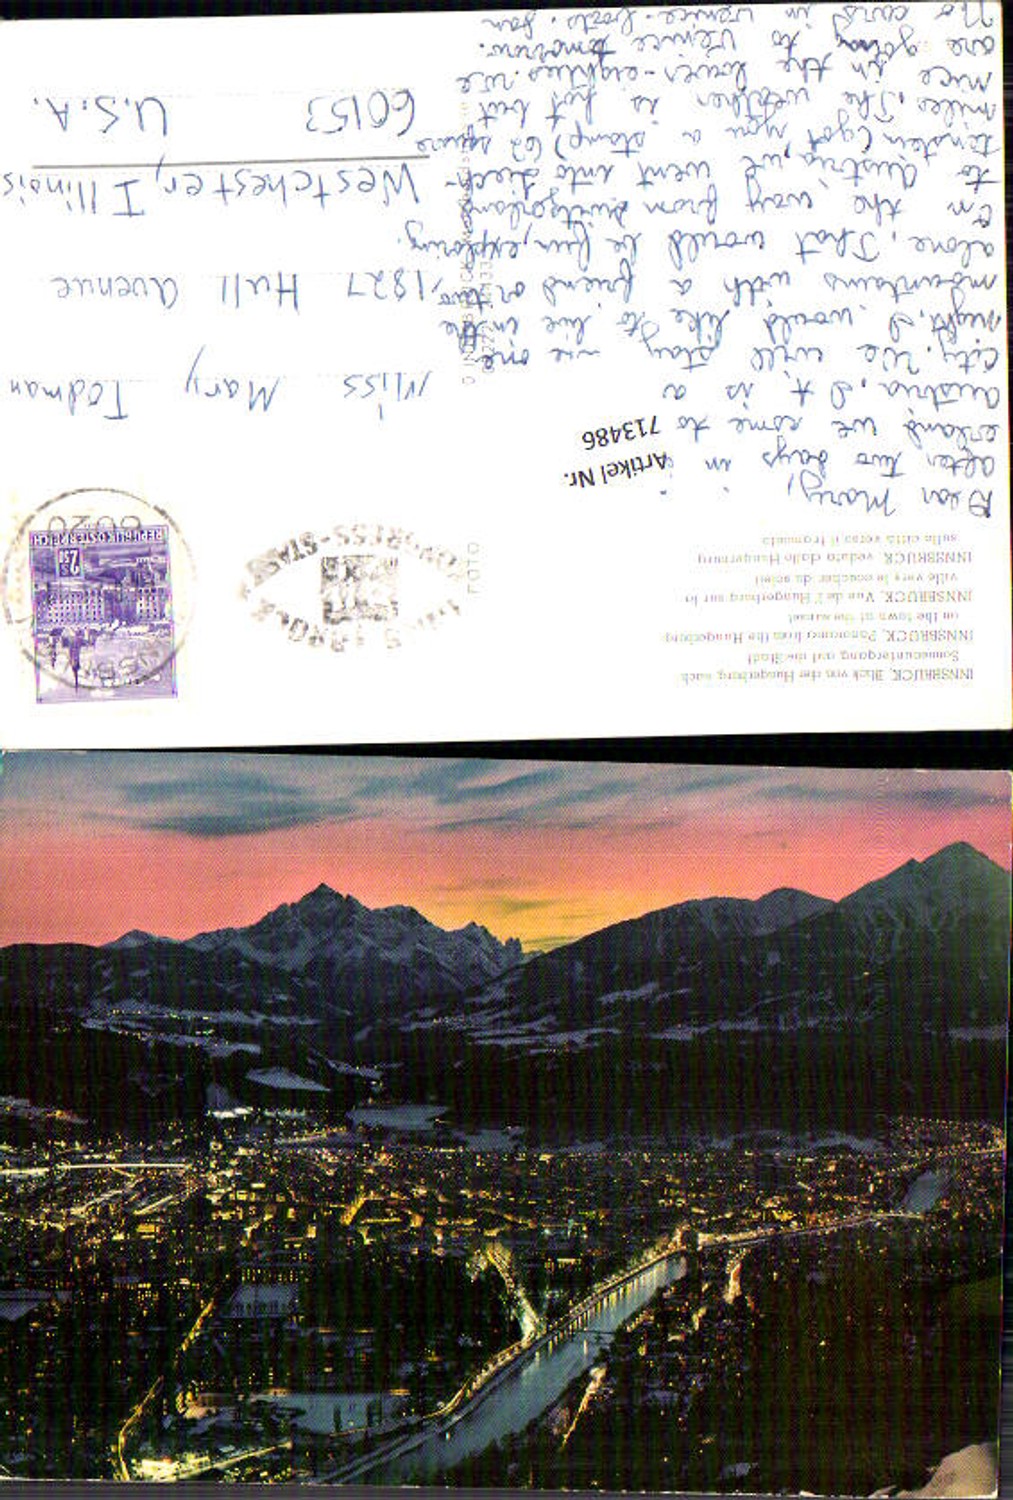 INNSBRUCK, Blick von der Hungerburg nach
Sonnenuntergang auf die Stadt
INNSBRUCK, Panorama from the Hungerburg
on the town at the sunset
INNSBRUCK, Vue de l'Hungerburg sur la
ville vers le coucher du soleil
INNSBRUCK, veduta dalla Hungerburg
sulla città verso il tramonto
FOTO
REPUBLIK ÖSTERREICH
S 2.50
6020
Artikel Nr.
713486
Dear Mary,
after two days in
erland we come to
Austria. It is a
city. We will stay one
night. I would like to live in the
mountains with a friend or two,
alone. That would be fun, exploring.
On the way from Switzerland
to Austria, we went into Liech-
tenstein (got you a stamp) 62 square
miles. The weather is hot but
nice in the lower-eighties. We
are going to Venice tomorrow.
No cars in Venice-boats. fun
Miss Mary Todman
1827 Hull Avenue
Westchester, Illinois
60153 U.S.A.